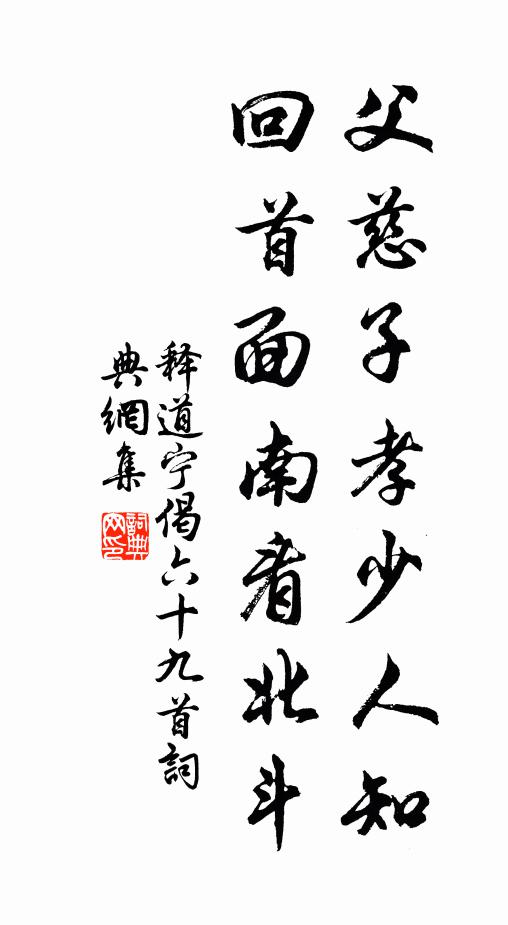 父慈子孝少人知
回首面南看北斗
释道宁偈六十九首詞
典網集
詞典
网印